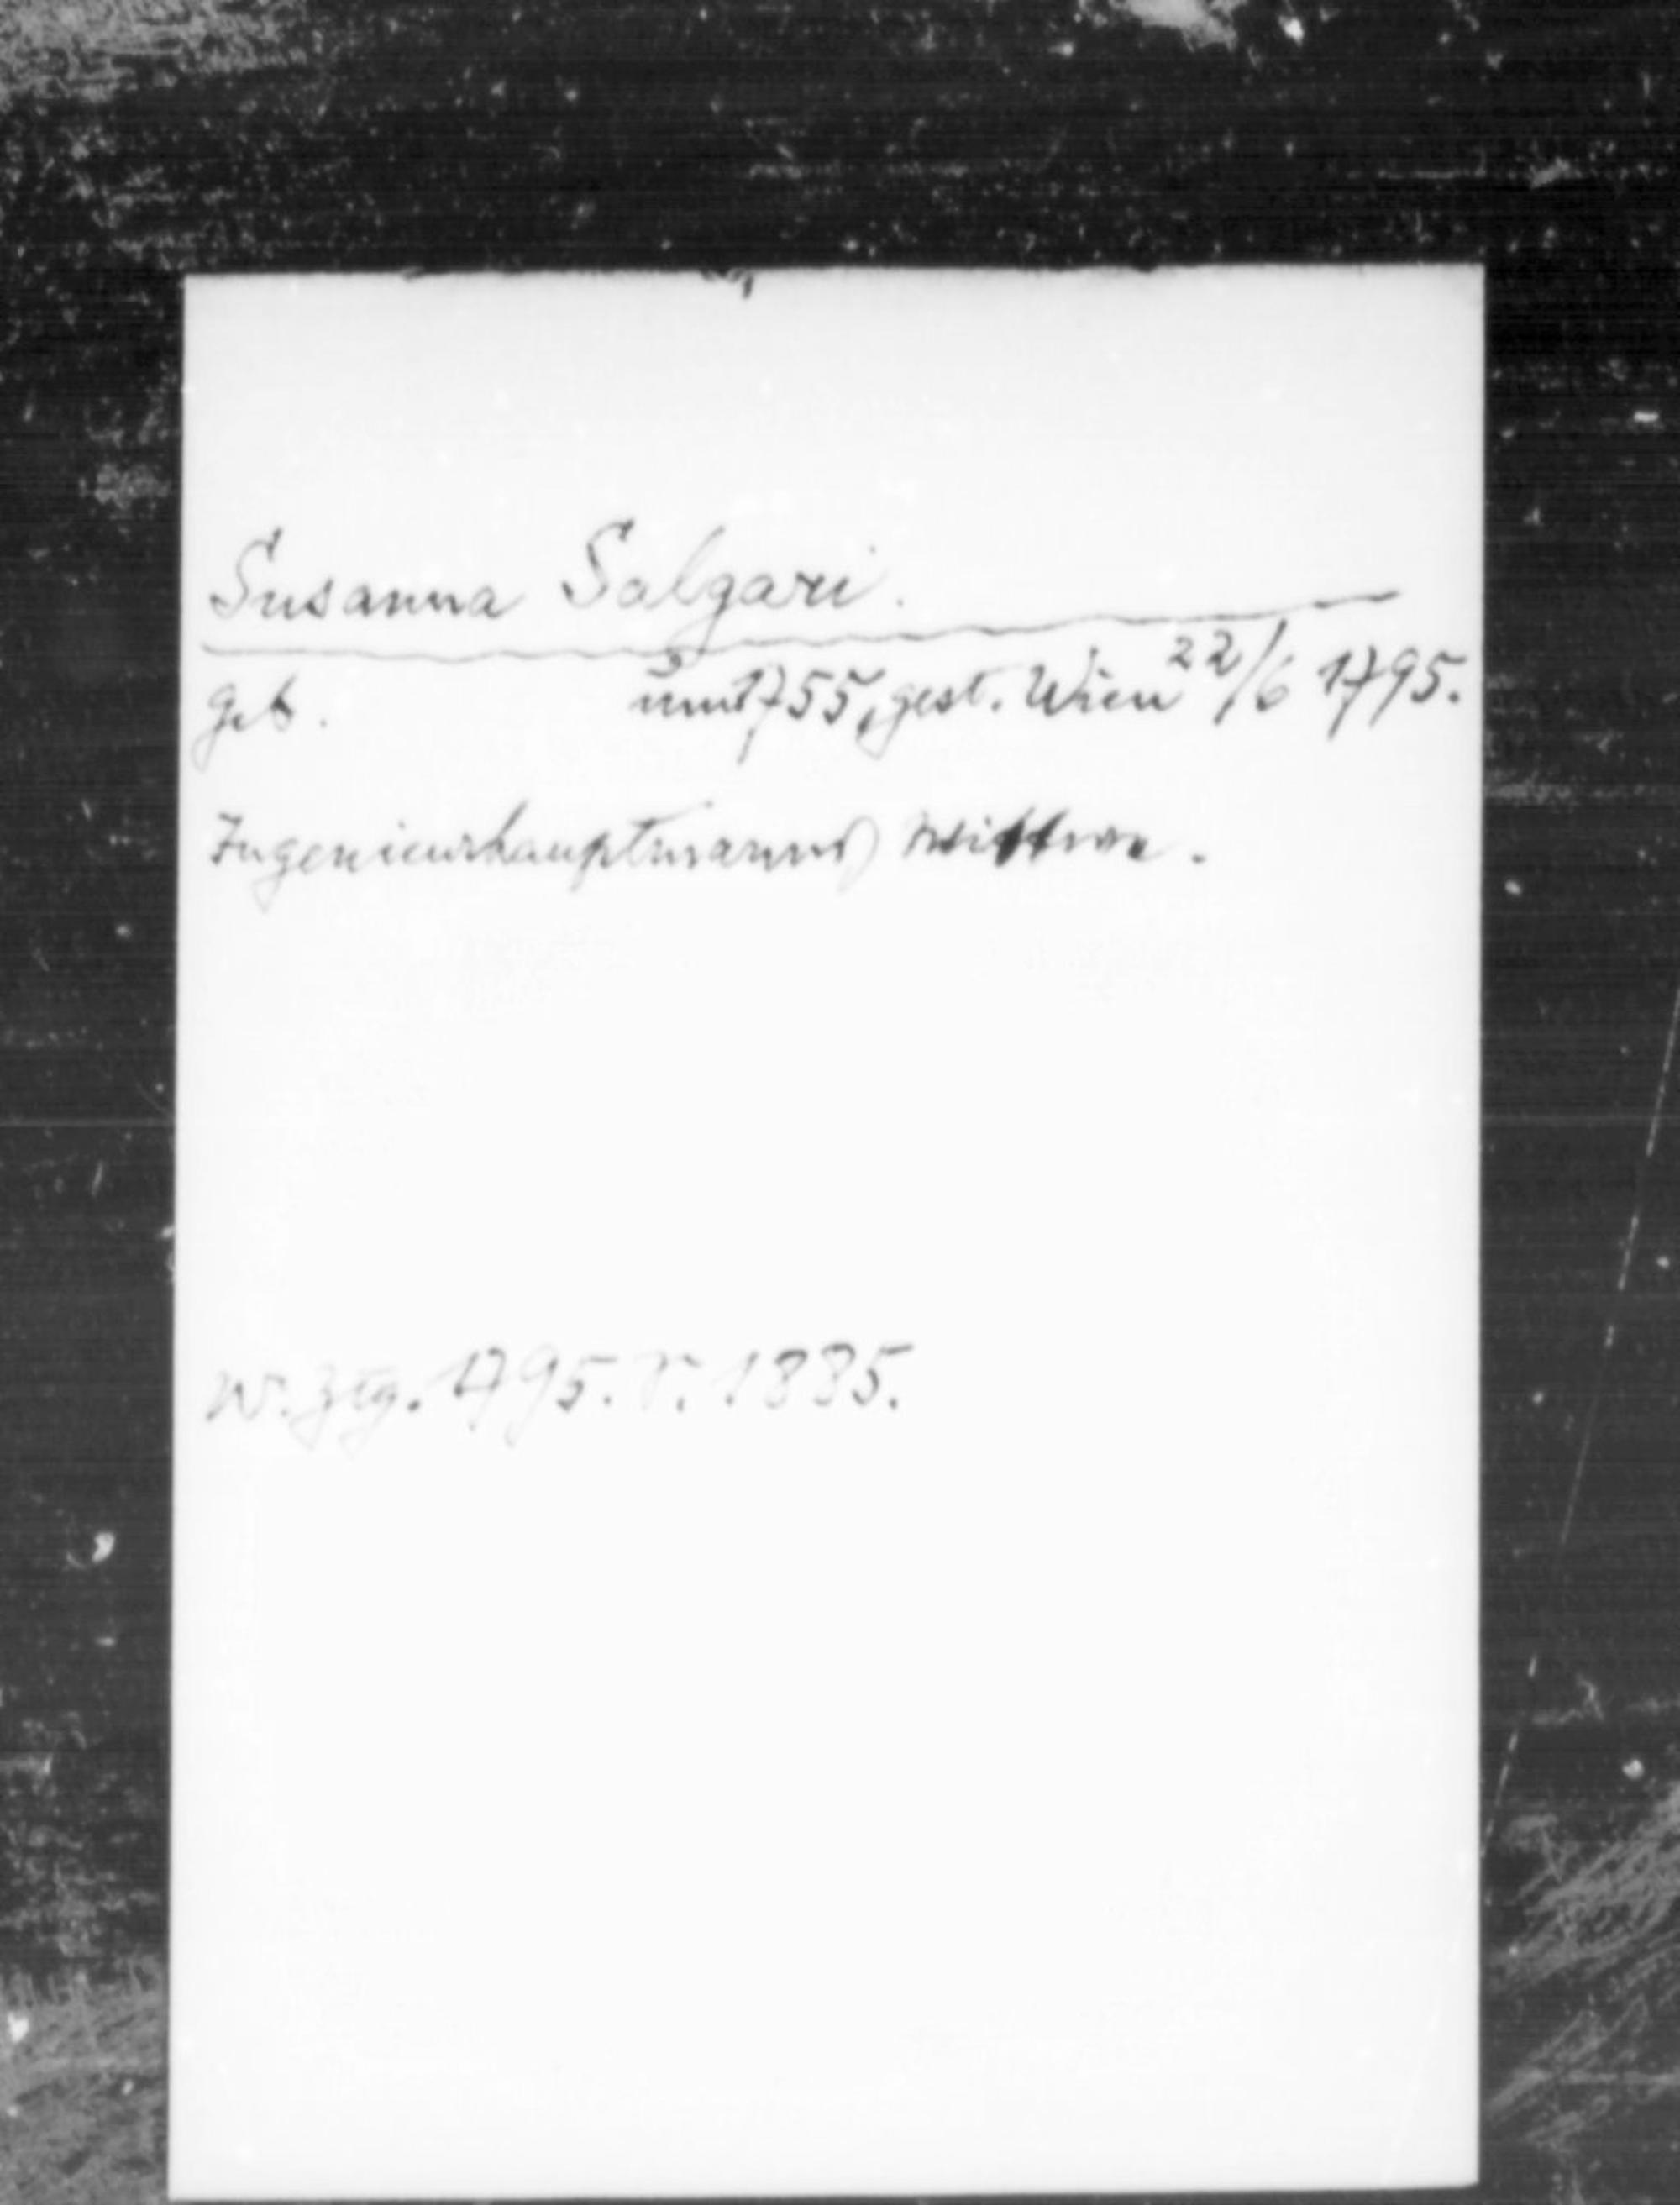 Susanna Salgari.
geb. um 1755, gest. Wien 22/6 1795.
Ingenieurhauptmanns Wittwe.
W. Ztg. 1795. S. 1885.